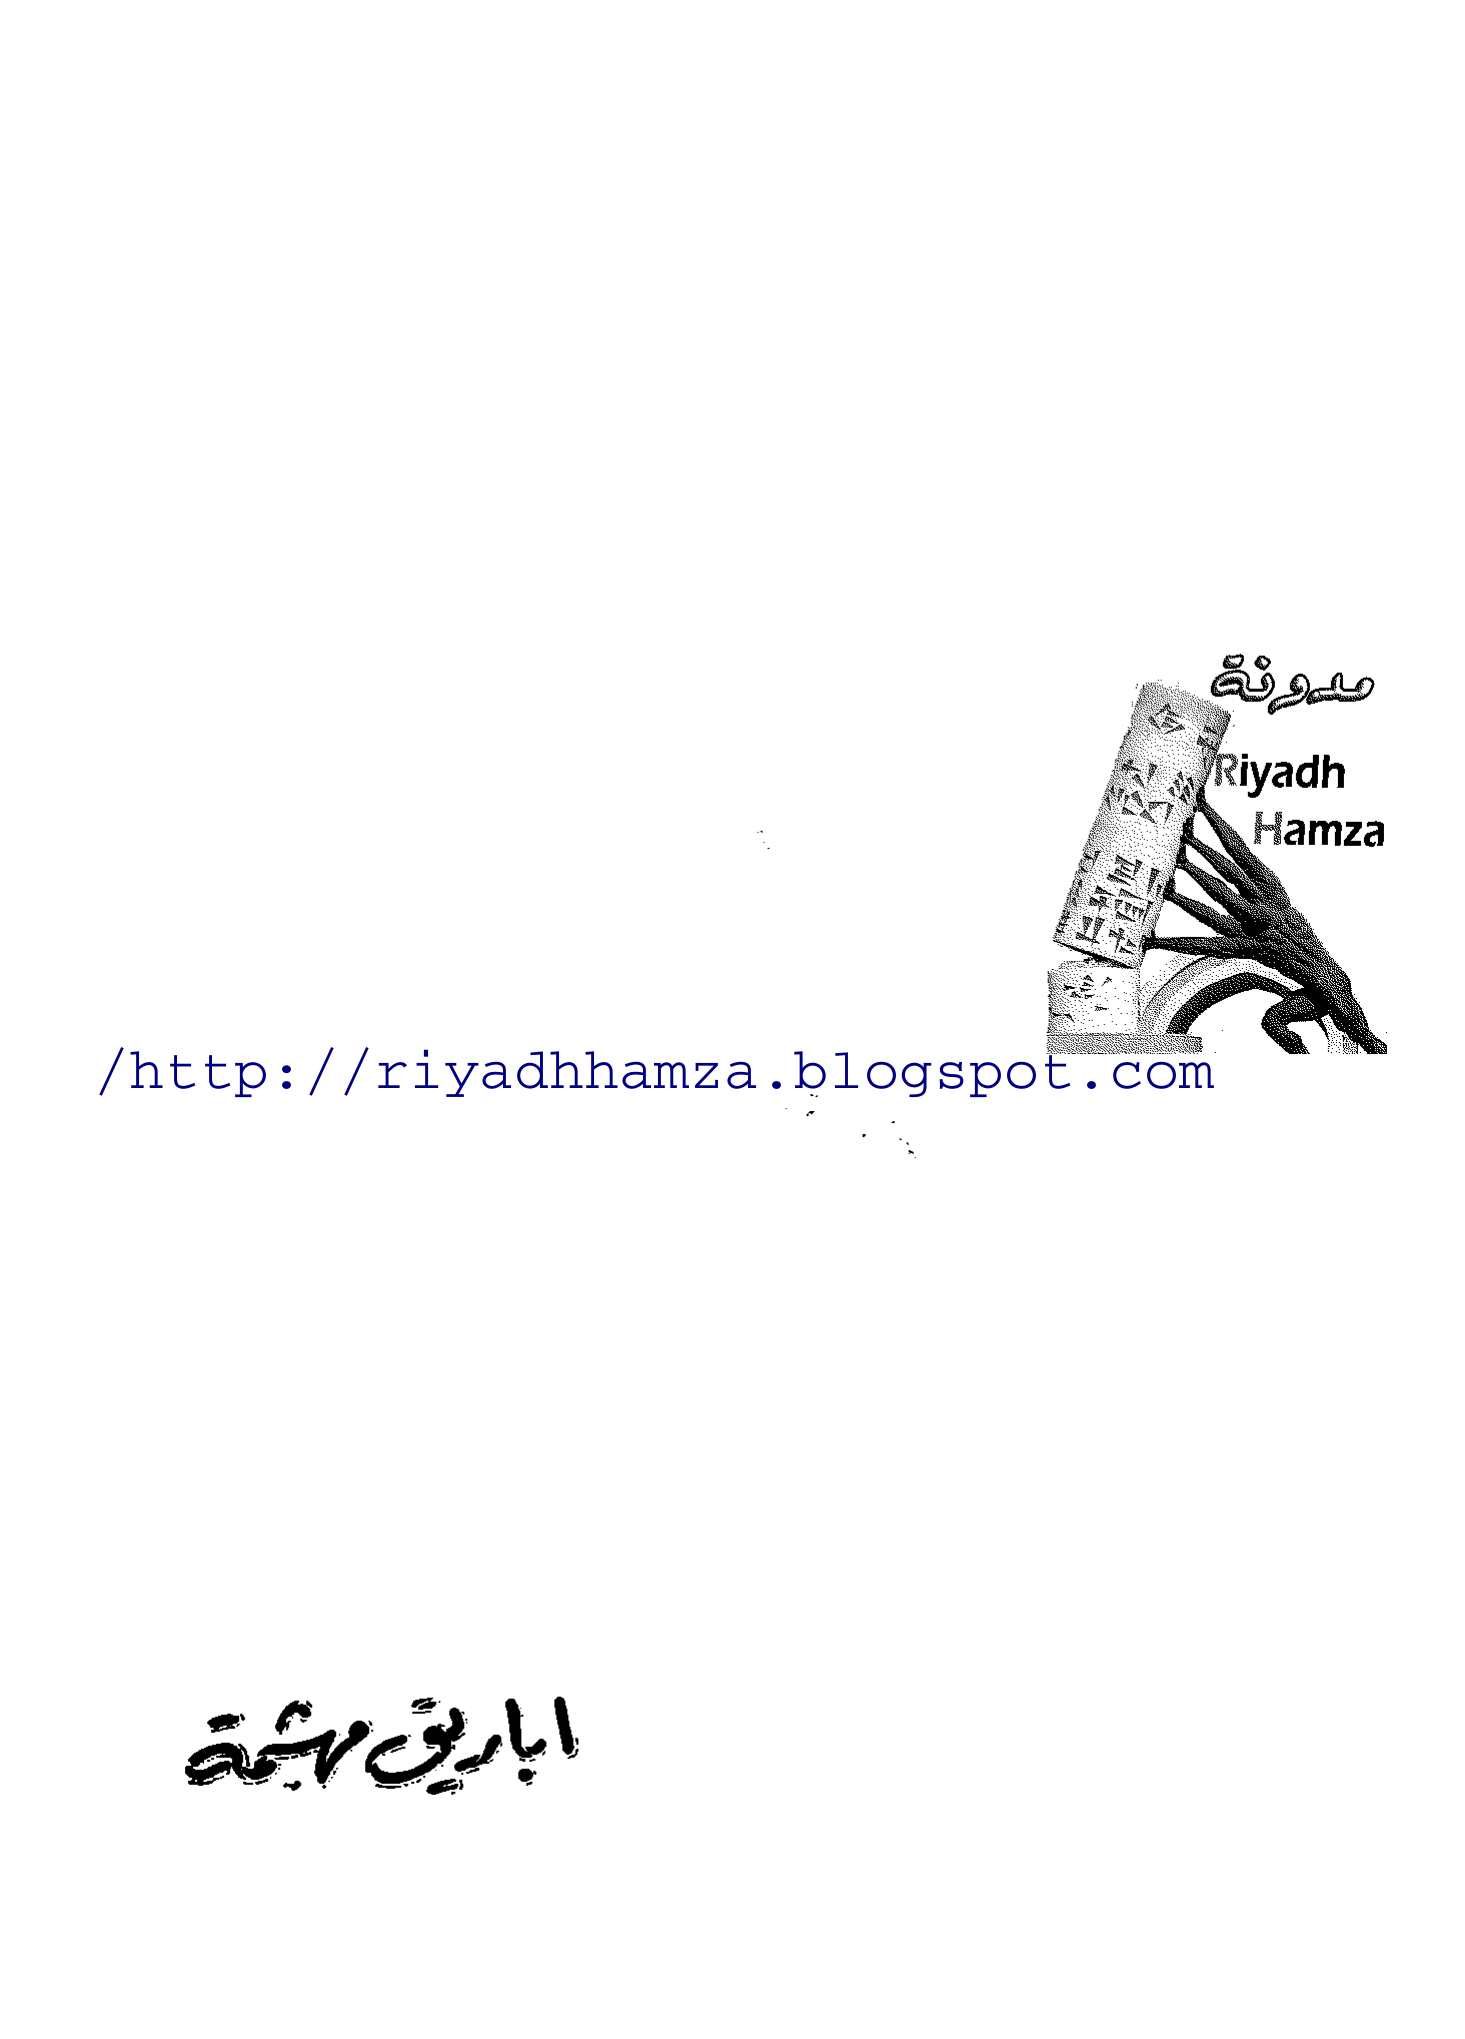 مدونة
Riyadh
Hamza
/http://riyadhhamza.blogspot.com
اباريق مهشمة